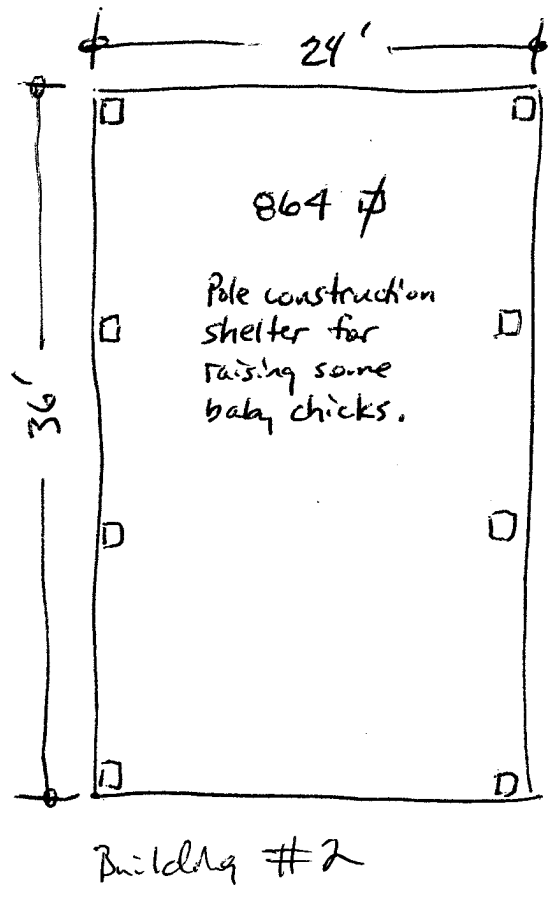 24'
864 ⏍
Pole construction
shelter for
raising some
baby chicks.
36'
Building #2